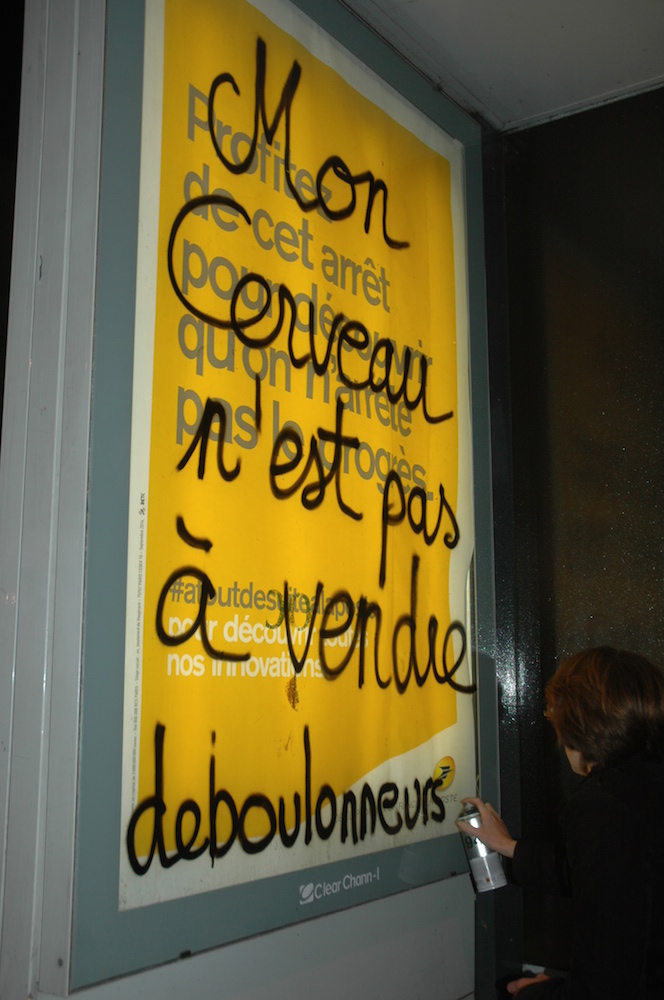 Mon
Cerveau
n'est pas
à vendre
deboulonneurs
Profitez
de cet arrêt
pour découvrir
qu'on n'arrête
pas le progrès.
pour découvrir toutes
nos innovations.
Clear Chann-l